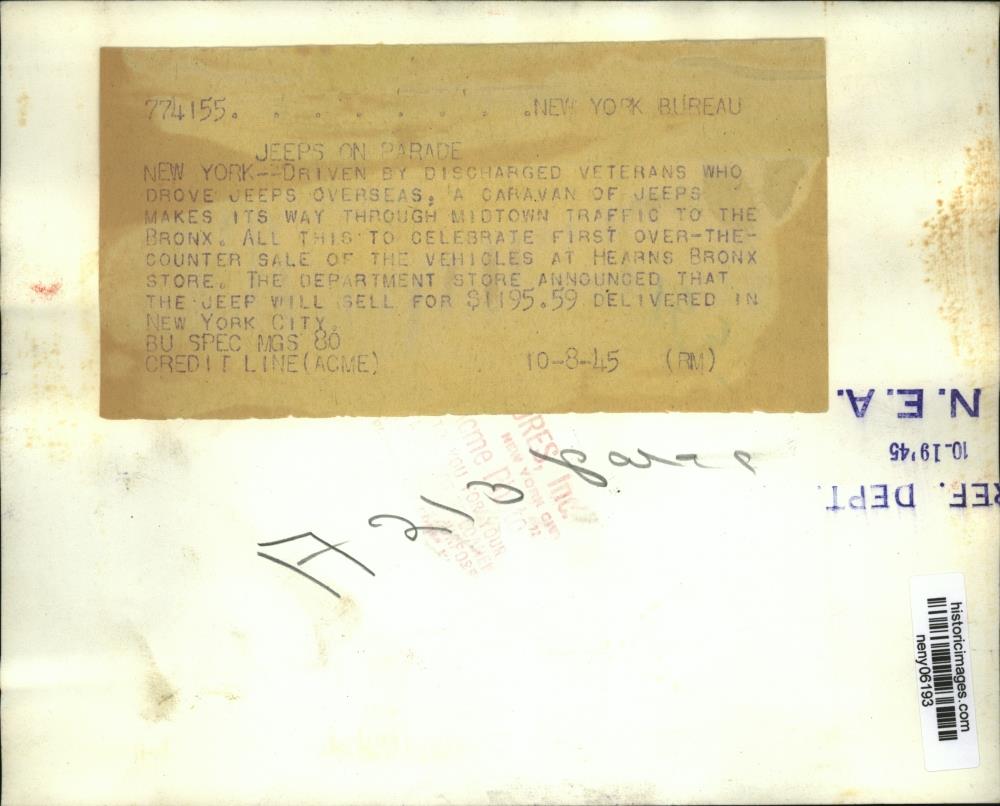 774155. . . . . . . .NEW YORK BUREAU
JEEPS ON PARADE
NEW YORK--DRIVEN BY DISCHARGED VETERANS WHO
DROVE JEEPS OVERSEAS, A CARAVAN OF JEEPS
MAKES ITS WAY THROUGH MIDTOWN TRAFFIC TO THE
BRONX. ALL THIS TO CELEBRATE FIRST OVER-THE-
COUNTER SALE OF THE VEHICLES AT HEARNS BRONX
STORE. THE DEPARTMENT STORE ANNOUNCED THAT
THE JEEP WILL SELL FOR $1195.59 DELIVERED IN
NEW YORK CITY.
BU SPEC MGS 80
CREDIT LINE(ACME) 10-8-45 (RM)
N.E.A.
10-19'45
REF. DEPT.
URES, Inc.
NEW YORK CITY
cme
YOU FOR YOUR
historicimages.com
neny06193